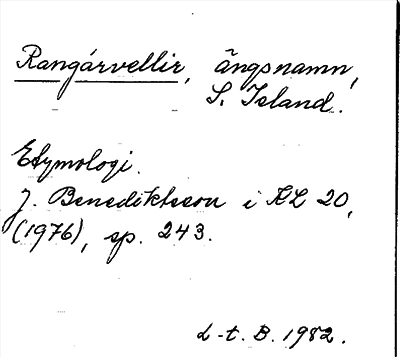 Rangárvellir, ängsnamn,
S. Island.
Etymologi.
J. Benediktsson i KL 20,
(1976), sp. 243.
L-t. B. 1982.